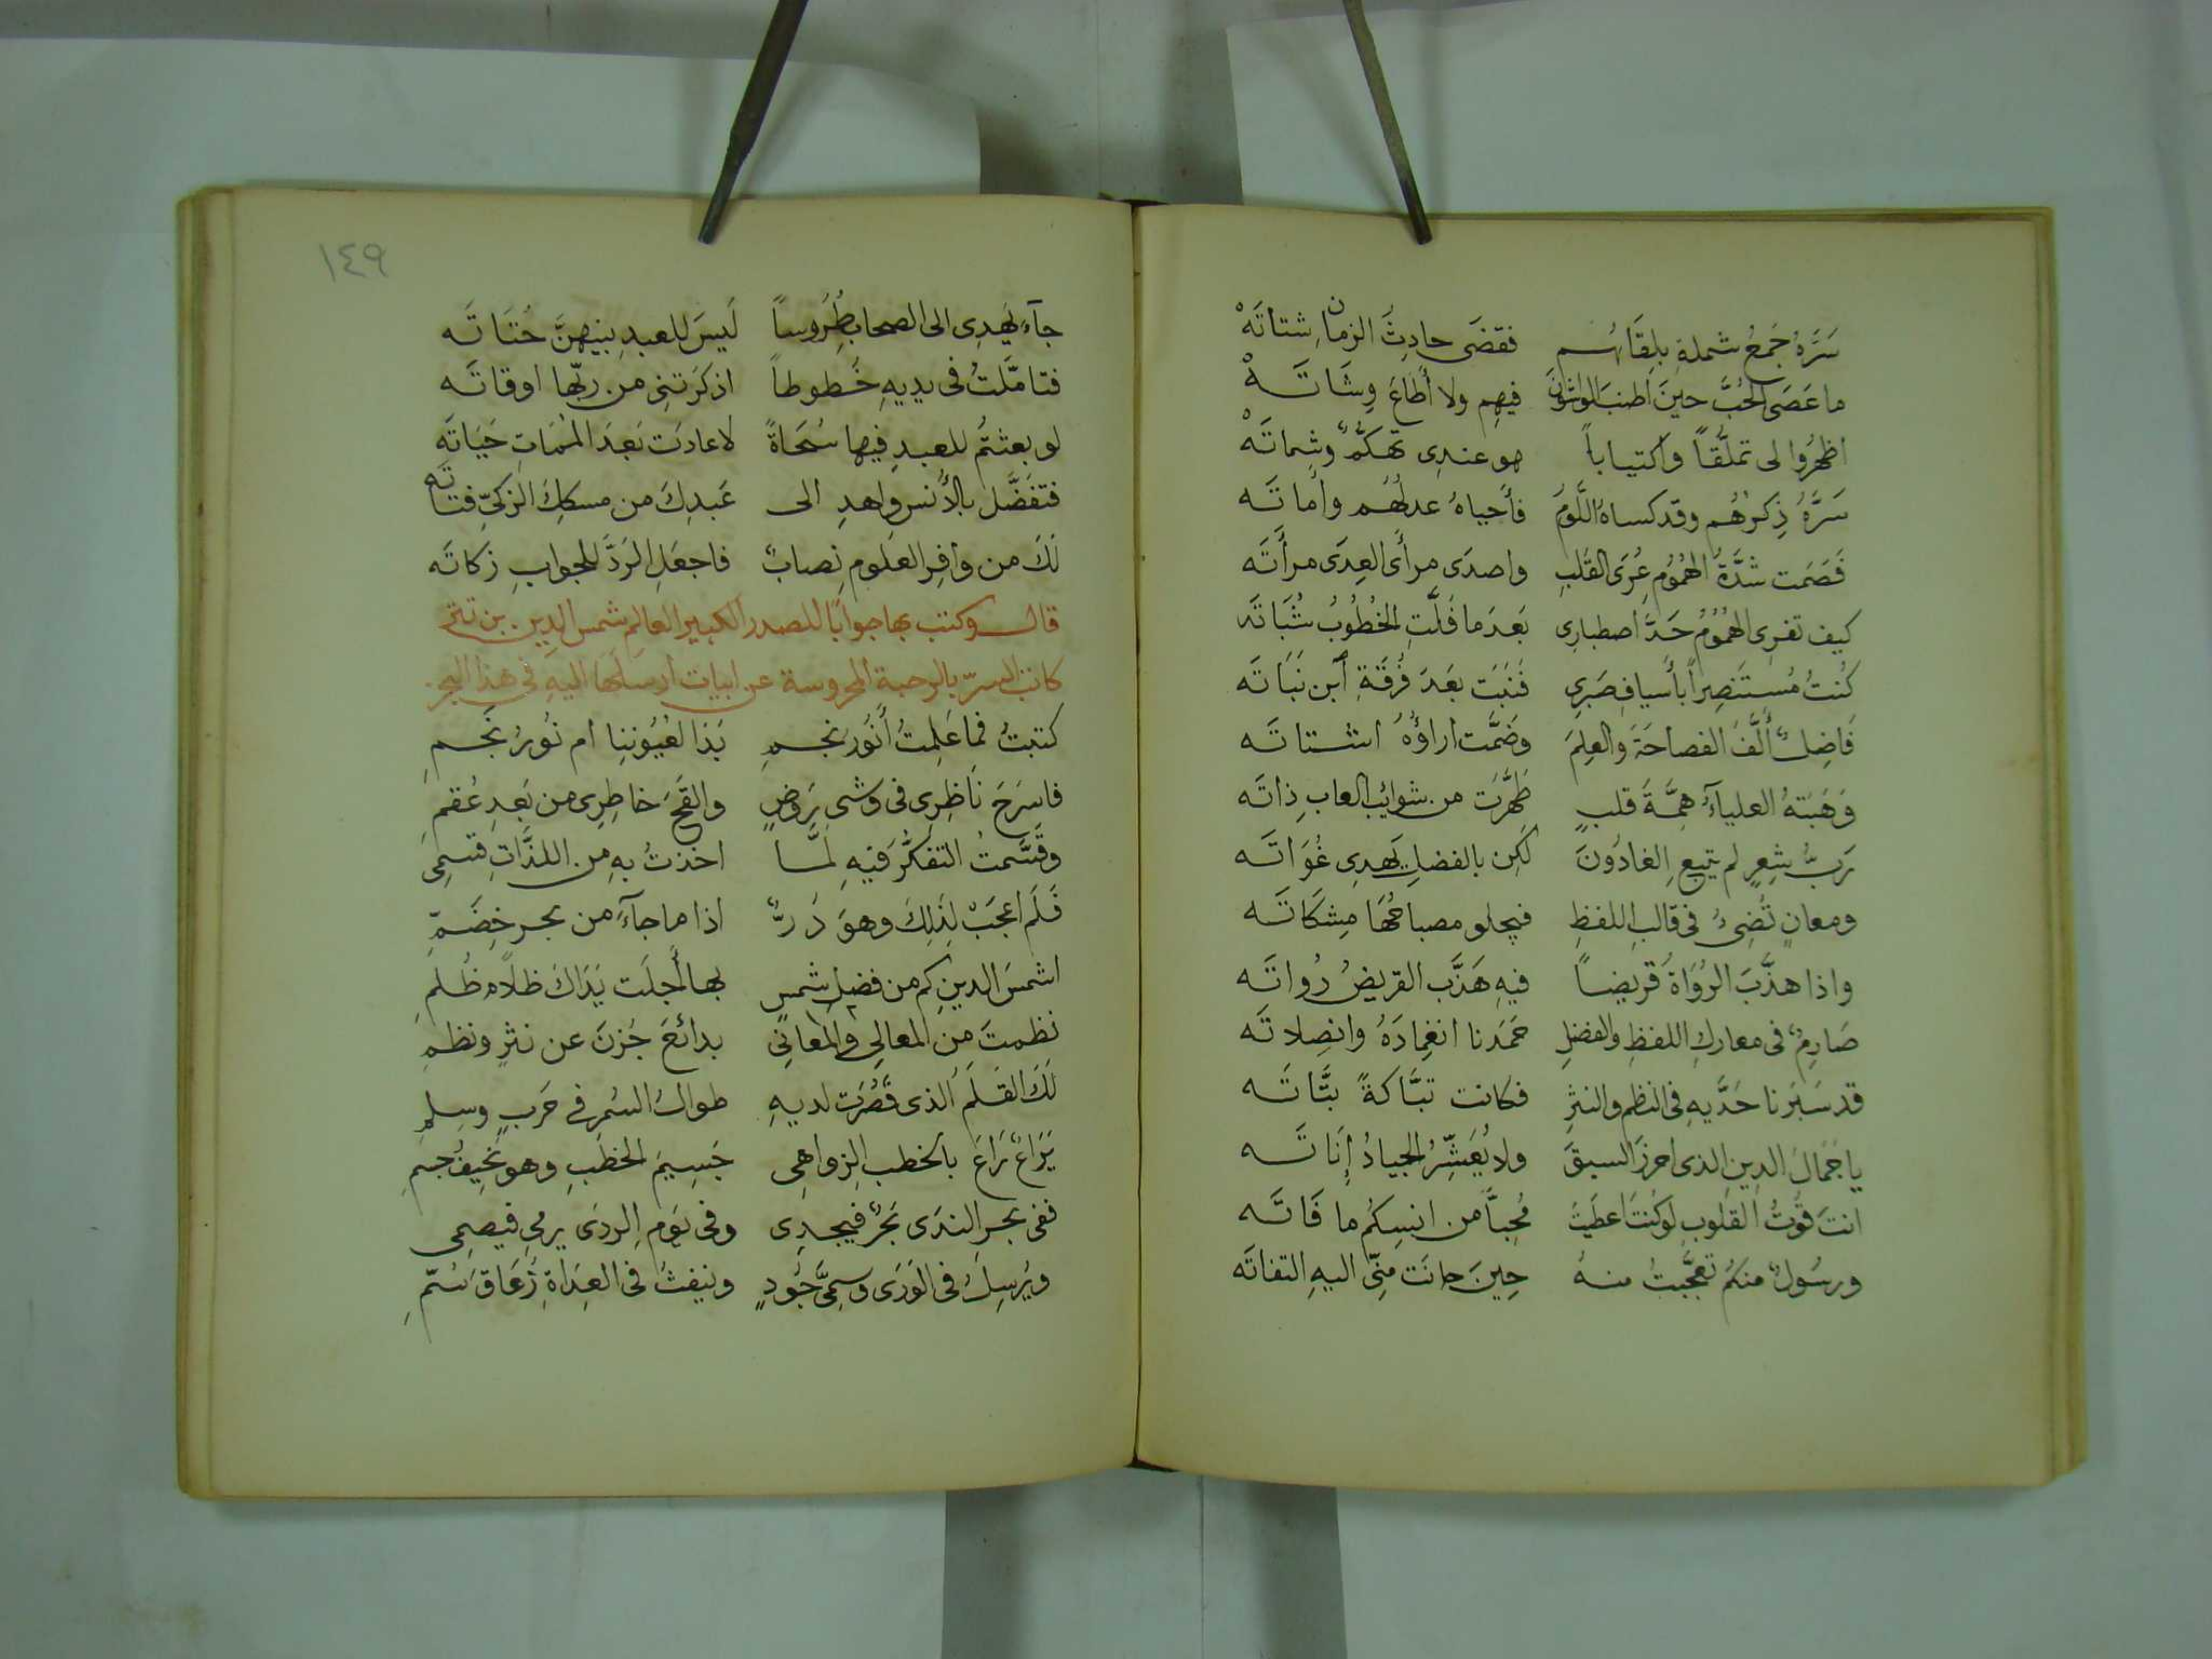 سَرَّهُ جَمعُ شملهِ بلِقَائهُم فقضَى حادِثُ الزمانِ شتاتَهْ
ما عَصَى الحُبَّ حينَ اطنبَ الواشُونَ فيهِم ولا أَطَاعَ وِشَاتَهْ
اظهرُوا لى تملُّقاً واكتياباً هو عندِى تهكّمٌ وشِماتَهْ
سَرَّهُ ذِكرهُم وقد كساهُ اللَّومُ فأحياهُ عدلُهُم وأماتَه
فَصَمَت شدَّةُ الهُمُومِ عُرَى القلبِ واصدَى مِرأَى العِدَى مرأَتَه
كيف تفرِى الهُمُومُ حَدَّ اصطبارِى بَعدَ ما فَلَّتِ الخُطُوبُ شَبَاتَه
كُنتُ مُستَنصِراً بأَسيافِ صَبرِي فَنَبَت بَعدَ فُرقَةِ ابن نَبَاتَه
فَاضِلٌ أَلَّفَ الفصاحَةَ والعِلمَ وضَمَّت اراؤُهُ اشتاتَه
وَهَبَتهُ العلياءُ هِمَّةَ قلبٍ طَهَّرَت من شوائب العابِ ذِاتَه
رَبُّ شِعرٍ لم يتبعِ الغاوُونَ لكِن بالفضلِ يَهدِى غُوَاتَه
ومعانٍ تُضِىءُ فى قالبِ اللفظِ فيجلو مصباحُهَا مِشكَاتَه
واذا هذَّبَ الرُوَاةُ قريضاً فيهِ هَذَّب القريضُ رُواتَه
صَارِمٌ فى معاركِ اللفظِ والفضلِ حَمَدنا انغِمادَهُ وانصِلاتَه
قد سَبَرنا حَدَّيهِ فى النظمِ والنثرِ فكانت تبَّاكةً بتَّاتَه
يا جَمالَ الدينِ الذى احرزَ السبقَ ولا يُعَشِّرُ الجيادُ إِنَاتَه
انتَ قُوتُ القلُوبِ لو كُنتَ اعطَيتَ مُحِبّاً من انسِكُم ما فَاتَه
ورسُولٌ منكمُ تعجَّبتُ منهُ حِينَ حانَت مِنّى اليهِ التفاتَه
١٤٩
جآءَ يَهدِى الى الصحاب طُرُوساً لَيسَ للعبدِ بينهنَّ حُتَاتَه
فتامَّلتُ فى يديهِ خُطوطاً اذكرَتنِى من ربّها اوقاتَه
لو بعثتُم للعبدِ فيها سُحَاةً لاعادَت بَعدَ المَمَاتِ حَيَاتَه
فتفَضَّل بالأُنس واهدِ الى عَبدِكَ من مسكِكَ الزكىّ فتاتَه
لكَ من وافِرِ العلُومِ نِصابٌ فاجعَلِ الرَدَّ للجوابِ زكاتَه
قال وكتب بها جوابًا للصدر الكبير العالم شمس الدين بن
كاتب السرّ بالرحبة المحروسة عن ابيات ارسلَها اليهِ فى هذا البحر.
كتبتُ فما عَلِمتُ أَنُورُ نجمٍ بَدَا لعُيُوننِا ام نُورُ نَجمِ
فاسرَحَ ناظِرِى فى وشى رَوضٍ والقحَ خاطِرِى من بَعدِ عُقمِ
وقَسَّمتُ التفكرَ فيهِ لمَّا اخذتُ بهِ من اللذَّاتِ قسمِى
فَلَم اعجَبْ لِذلِكَ وهوَ دُرٌّ اذا ما جآءَ من بحر خِضَمِّ
اشمسَ الدينِ كم من فضلِ شمسٍ بها أَجلَت يَدَاكَ ظلامَ ظُلمِ
نظمتَ مِن المعالِى والمعانِي بدائعَ جُزنَ عن نثرٍ ونظمِ
لكَ القلَم الذى قَصُرَت لديهِ طوالُ السُمرِ فى حَربٍ وسِلمِ
يَرَاعٌ رَاعَ بالخطبِ الزواهِى جَسِيمَ الخطبِ وهو نَحِيفُ جسمِ
ففى بحرِ الندَى بَحرٌ فيجدِى وفى يَومِ الردَى يرمِى فيصمِى
ويُرسِلُ فى الوَرَى وسمِىَّ جُودٍ وينفثُ فى العِدَاةِ زُعَاقَ سُمِّ